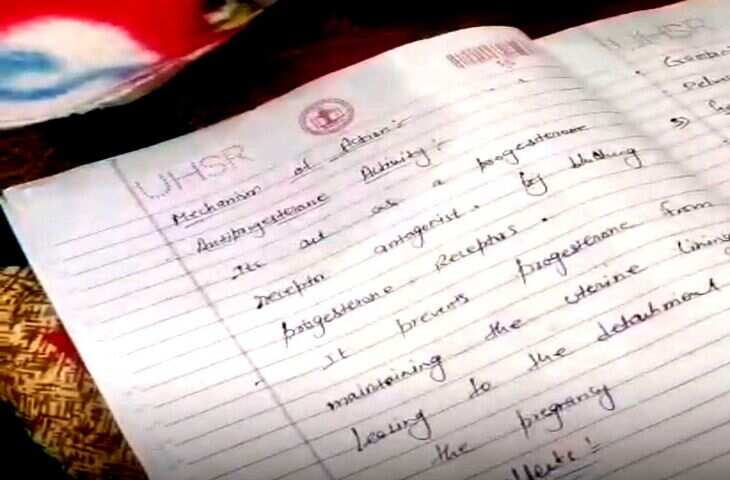 UHSR
Mechanism of Action:-
Antiprogesterone Activity:-
Its act as a progesterone
receptor antagonist. by blocking
progesterone Receptors.
It prevents progesterone from
maintaining the uterine lining
leasing to the detachment
the pregnancy
UHSR